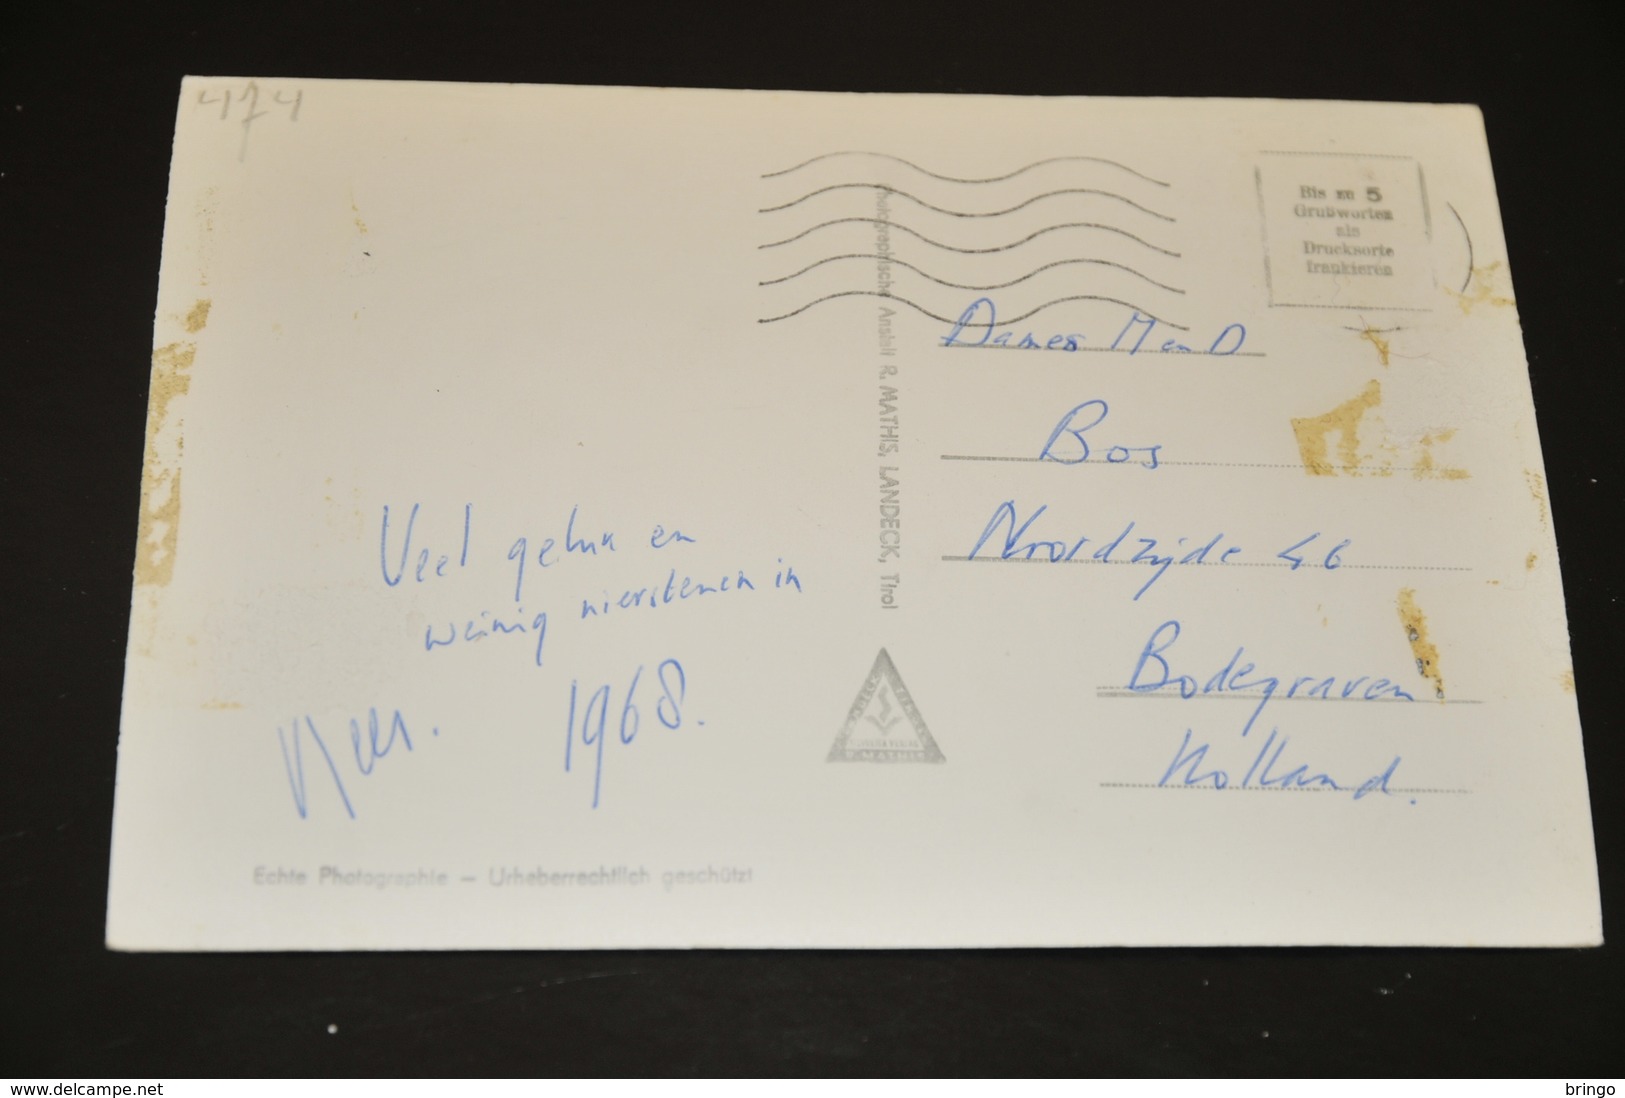 474
Bis zu 5
Grußworten
als
Drucksorte
frankieren
Photographische Anstalt R. MATHIS, LANDECK, Tirol
Dames M en D
Bos
Noordzijde 46
Bodegraven
Holland.
Veel geluk en
weinig nierstenen in
1968.
R. MATHIS
Echte Photographie — Urheberrechtlich geschützt
www.delcampe.net
bringo